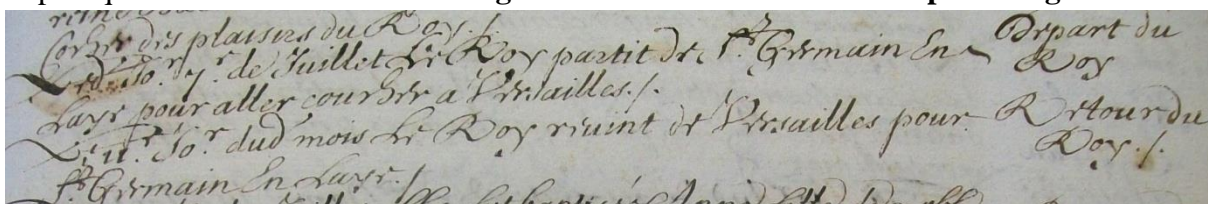 Cocher des plaisirs du Roy./.
Led. Jo.r 7.e de Juillet Le Roy partit de S.t Germain En
Laye pour aller coucher a Versailles./.
Depart du
Roy
Le 11.e Jo.r dud mois Le Roy revint de Versailles pour
S.t Germain En Laye./
Retour du
Roy./.